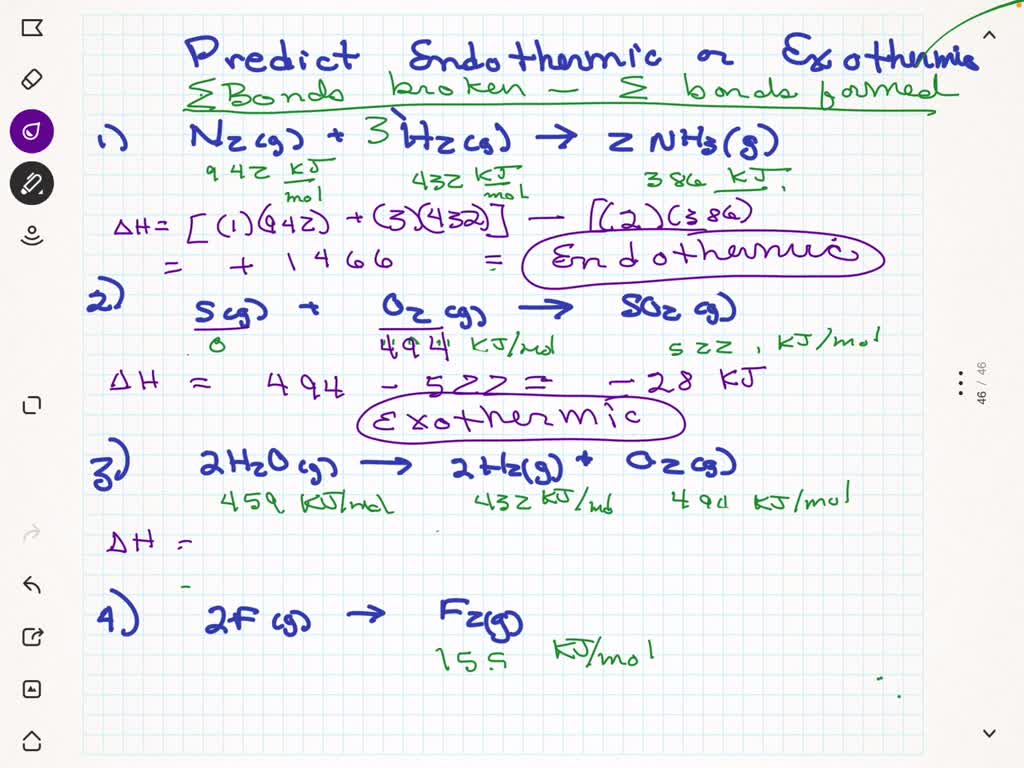 Predict Endothermic or Exothermic
ΣBonds broken − Σ bonds formed
1) N2(g) + 3 H2(g) → 2 NH3(g)
942 KJ/mol 432 KJ/mol 386 KJ.
ΔH = [(1)(942) + (3)(432)] − [(2)(386)
= + 1466 = Endothermic
2) S(g) + O2(g) → SO2(g)
0 494 KJ/mol 522, KJ/mol
ΔH = 494 − 522 = − 28 KJ
Exothermic
3) 2H2O(g) → 2H2(g) + O2(g)
459 KJ/mol 432 KJ/mol 494 KJ/mol
ΔH =
4) 2F(g) → F2(g)
155 KJ/mol
46 / 46